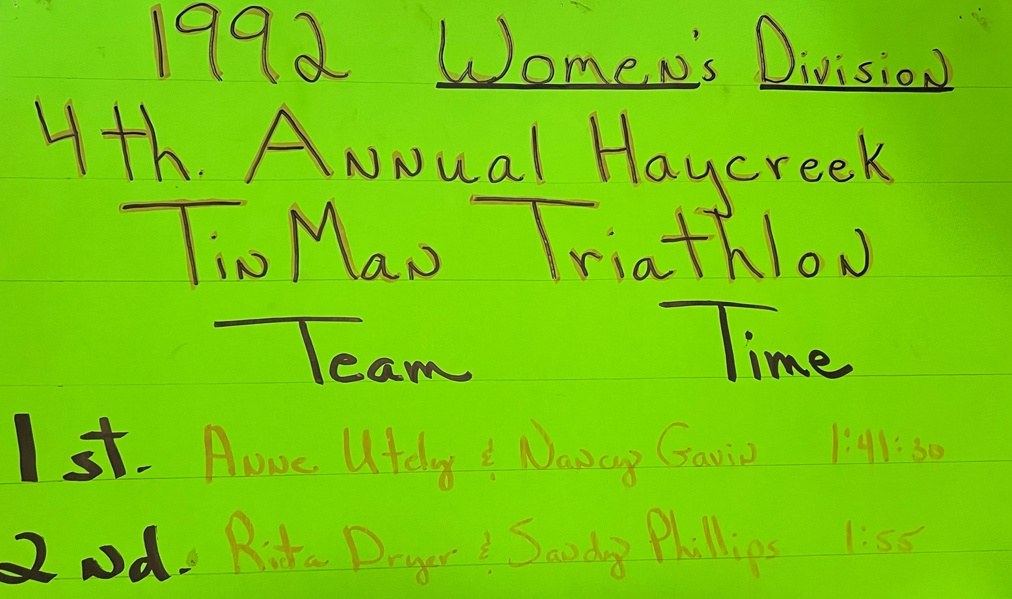 1992 Women's Division
4th. Annual Haycreek
TinMan Triathlon
Team Time
1st. Anne Utely & Nancy Gavin 1:41:30
2nd. Rita Dryer & Sandy Phillips 1:55